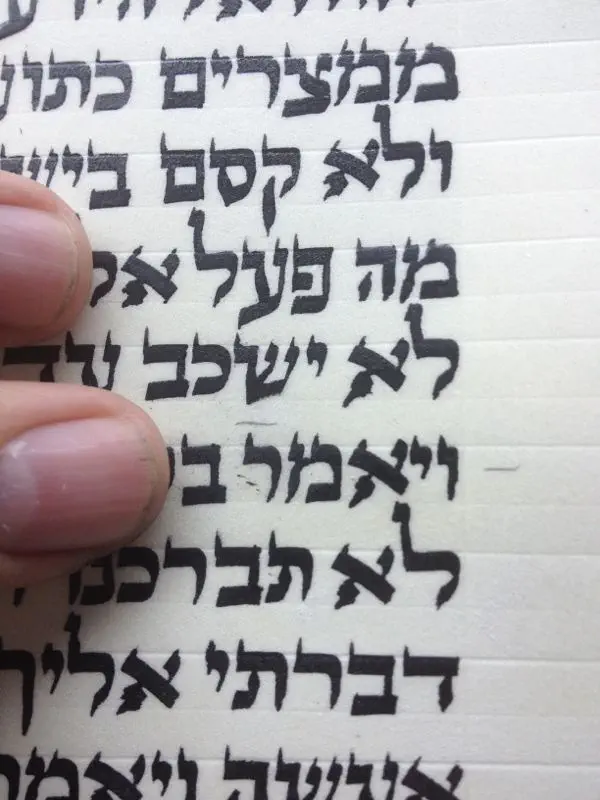 ממצרים כתוע
ולא קסם ביש
מה פעל אל
לא ישכב עד
ויאמר
לא תברכנו
דברתי אליך
אעשה ויאמר